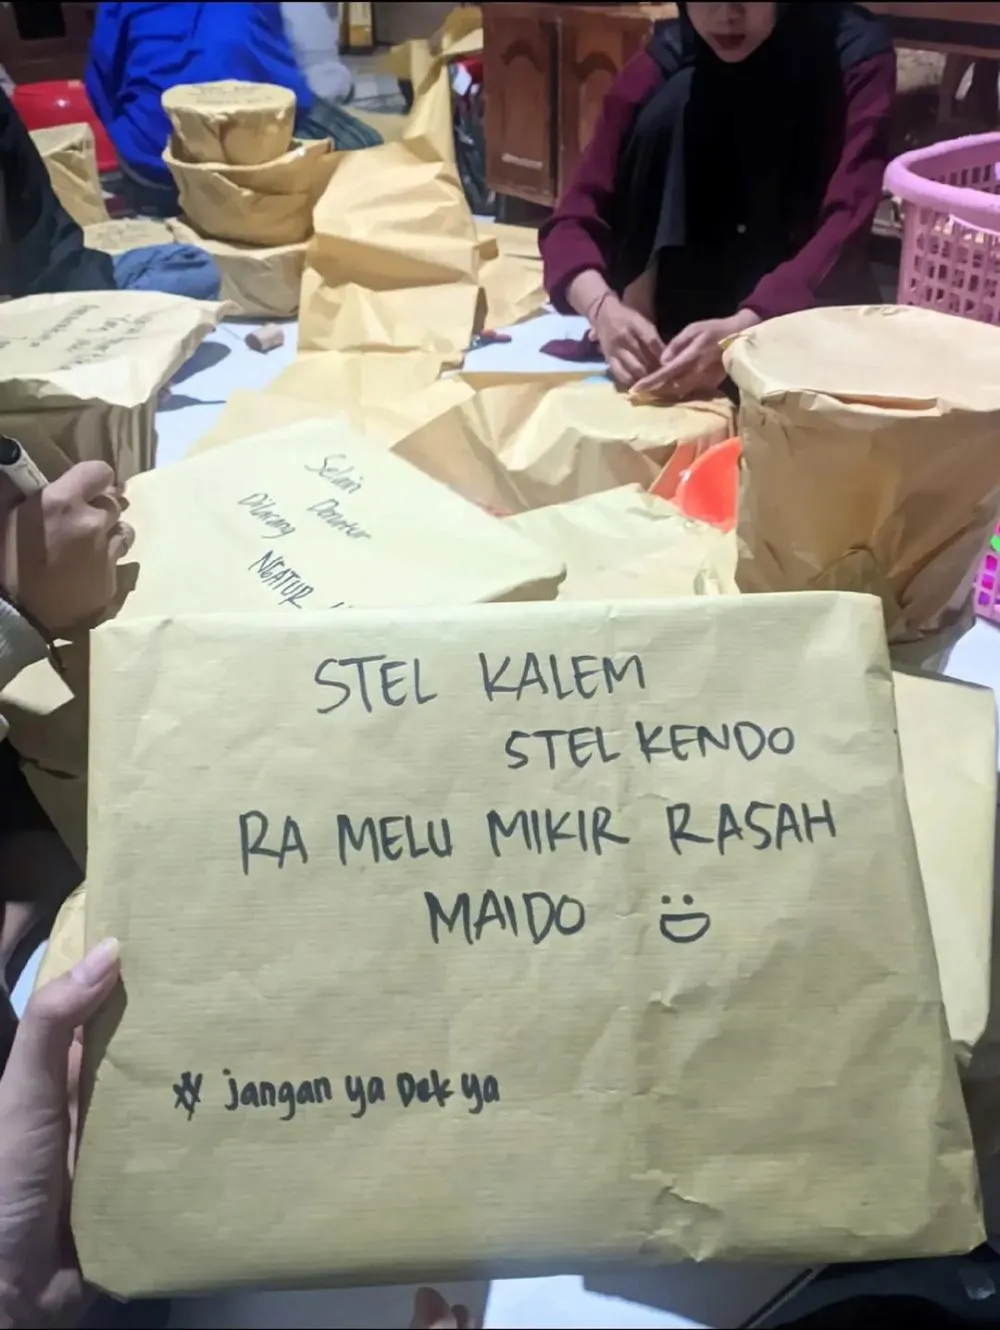 Selain
Donatur
Dilarang
NGATUR
STEL KALEM
STEL KENDO
RA MELU MIKIR RASAH
MAIDO
jangan ya Dek ya